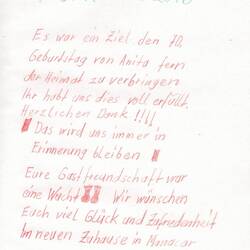 Es war ein Ziel den 70.
Geburtstag von Anita fern
der Heimat zu verbringen
Ihr habt uns dies voll erfüllt.
Herzlichen Dank !!!!
Das wird uns immer in
Erinnerung bleiben
Eure Gastfreundschaft war
eine Wucht Wir wünschen
Euch viel Glück und Zufriedenheit
Im neuen Zuhause in Manacar